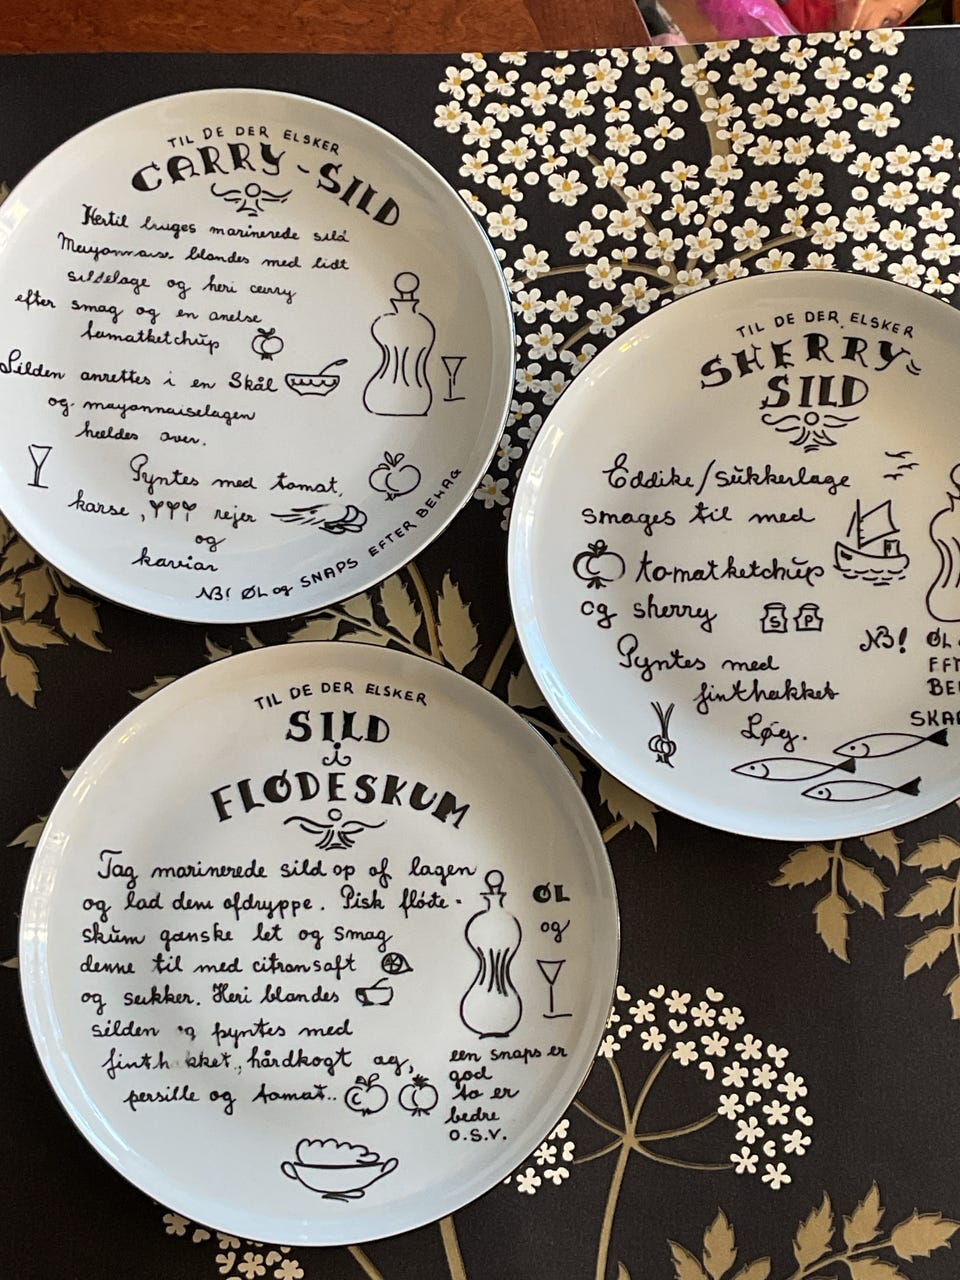 TIL DE DER ELSKER
CARRY-SILD
Hertil bruges marinerede sild
Mayonnaise blandes med lidt
sildelage og heri carry
efter smag og en anelse
tomatketchup
Silden anrettes i en Skål
og mayonnaiselagen
hældes over.
Pyntes med tomat,
karse, rejer
og
kaviar
NB! ØL og SNAPS EFTER BEHAG
TIL DE DER ELSKER
SHERRY-
SILD
Eddike/sukkerlage
smages til med
tomatketchup
og sherry
S P
Pyntes med
finthakket
Løg.
NB! ØL
EFT
BE
SKA
TIL DE DER ELSKER
SILD
i
FLØDESKUM
Tag marinerede sild op af lagen
og lad dem afdryppe. Pisk fløde-
skum ganske let og smag
denne til med citronsaft
og sukker. Heri blandes
silden og pyntes med
finth kket, hårdkogt æg,
persille og tomat..
ØL
og
een snaps er
god
to er
bedre
O.S.V.